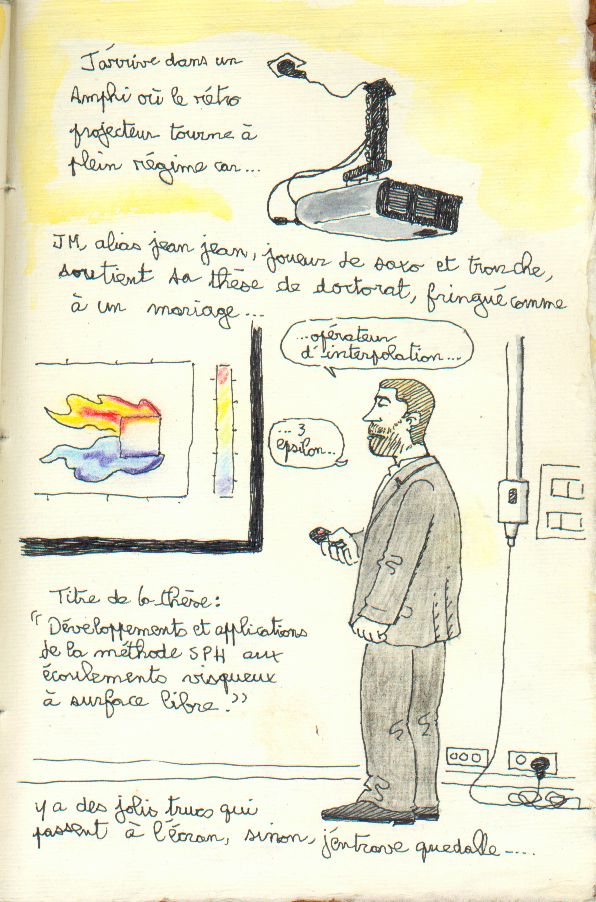 J'arrive dans un
Amphi où le rétro
projecteur tourne à
plein régime car...
JM, alias jean jean, joueur de saxo et tronche,
soutient sa thèse de doctorat, fringué comme
à un mariage...
...opérateur
d'interpolation...
...3
epsilon...
Titre de la thèse:
"Développements et applications
de la méthode SPH aux
écoulements visqueux
à surface libre."
y a des jolis trucs qui
passent à l'écran, sinon, j'entrave quedalle-....